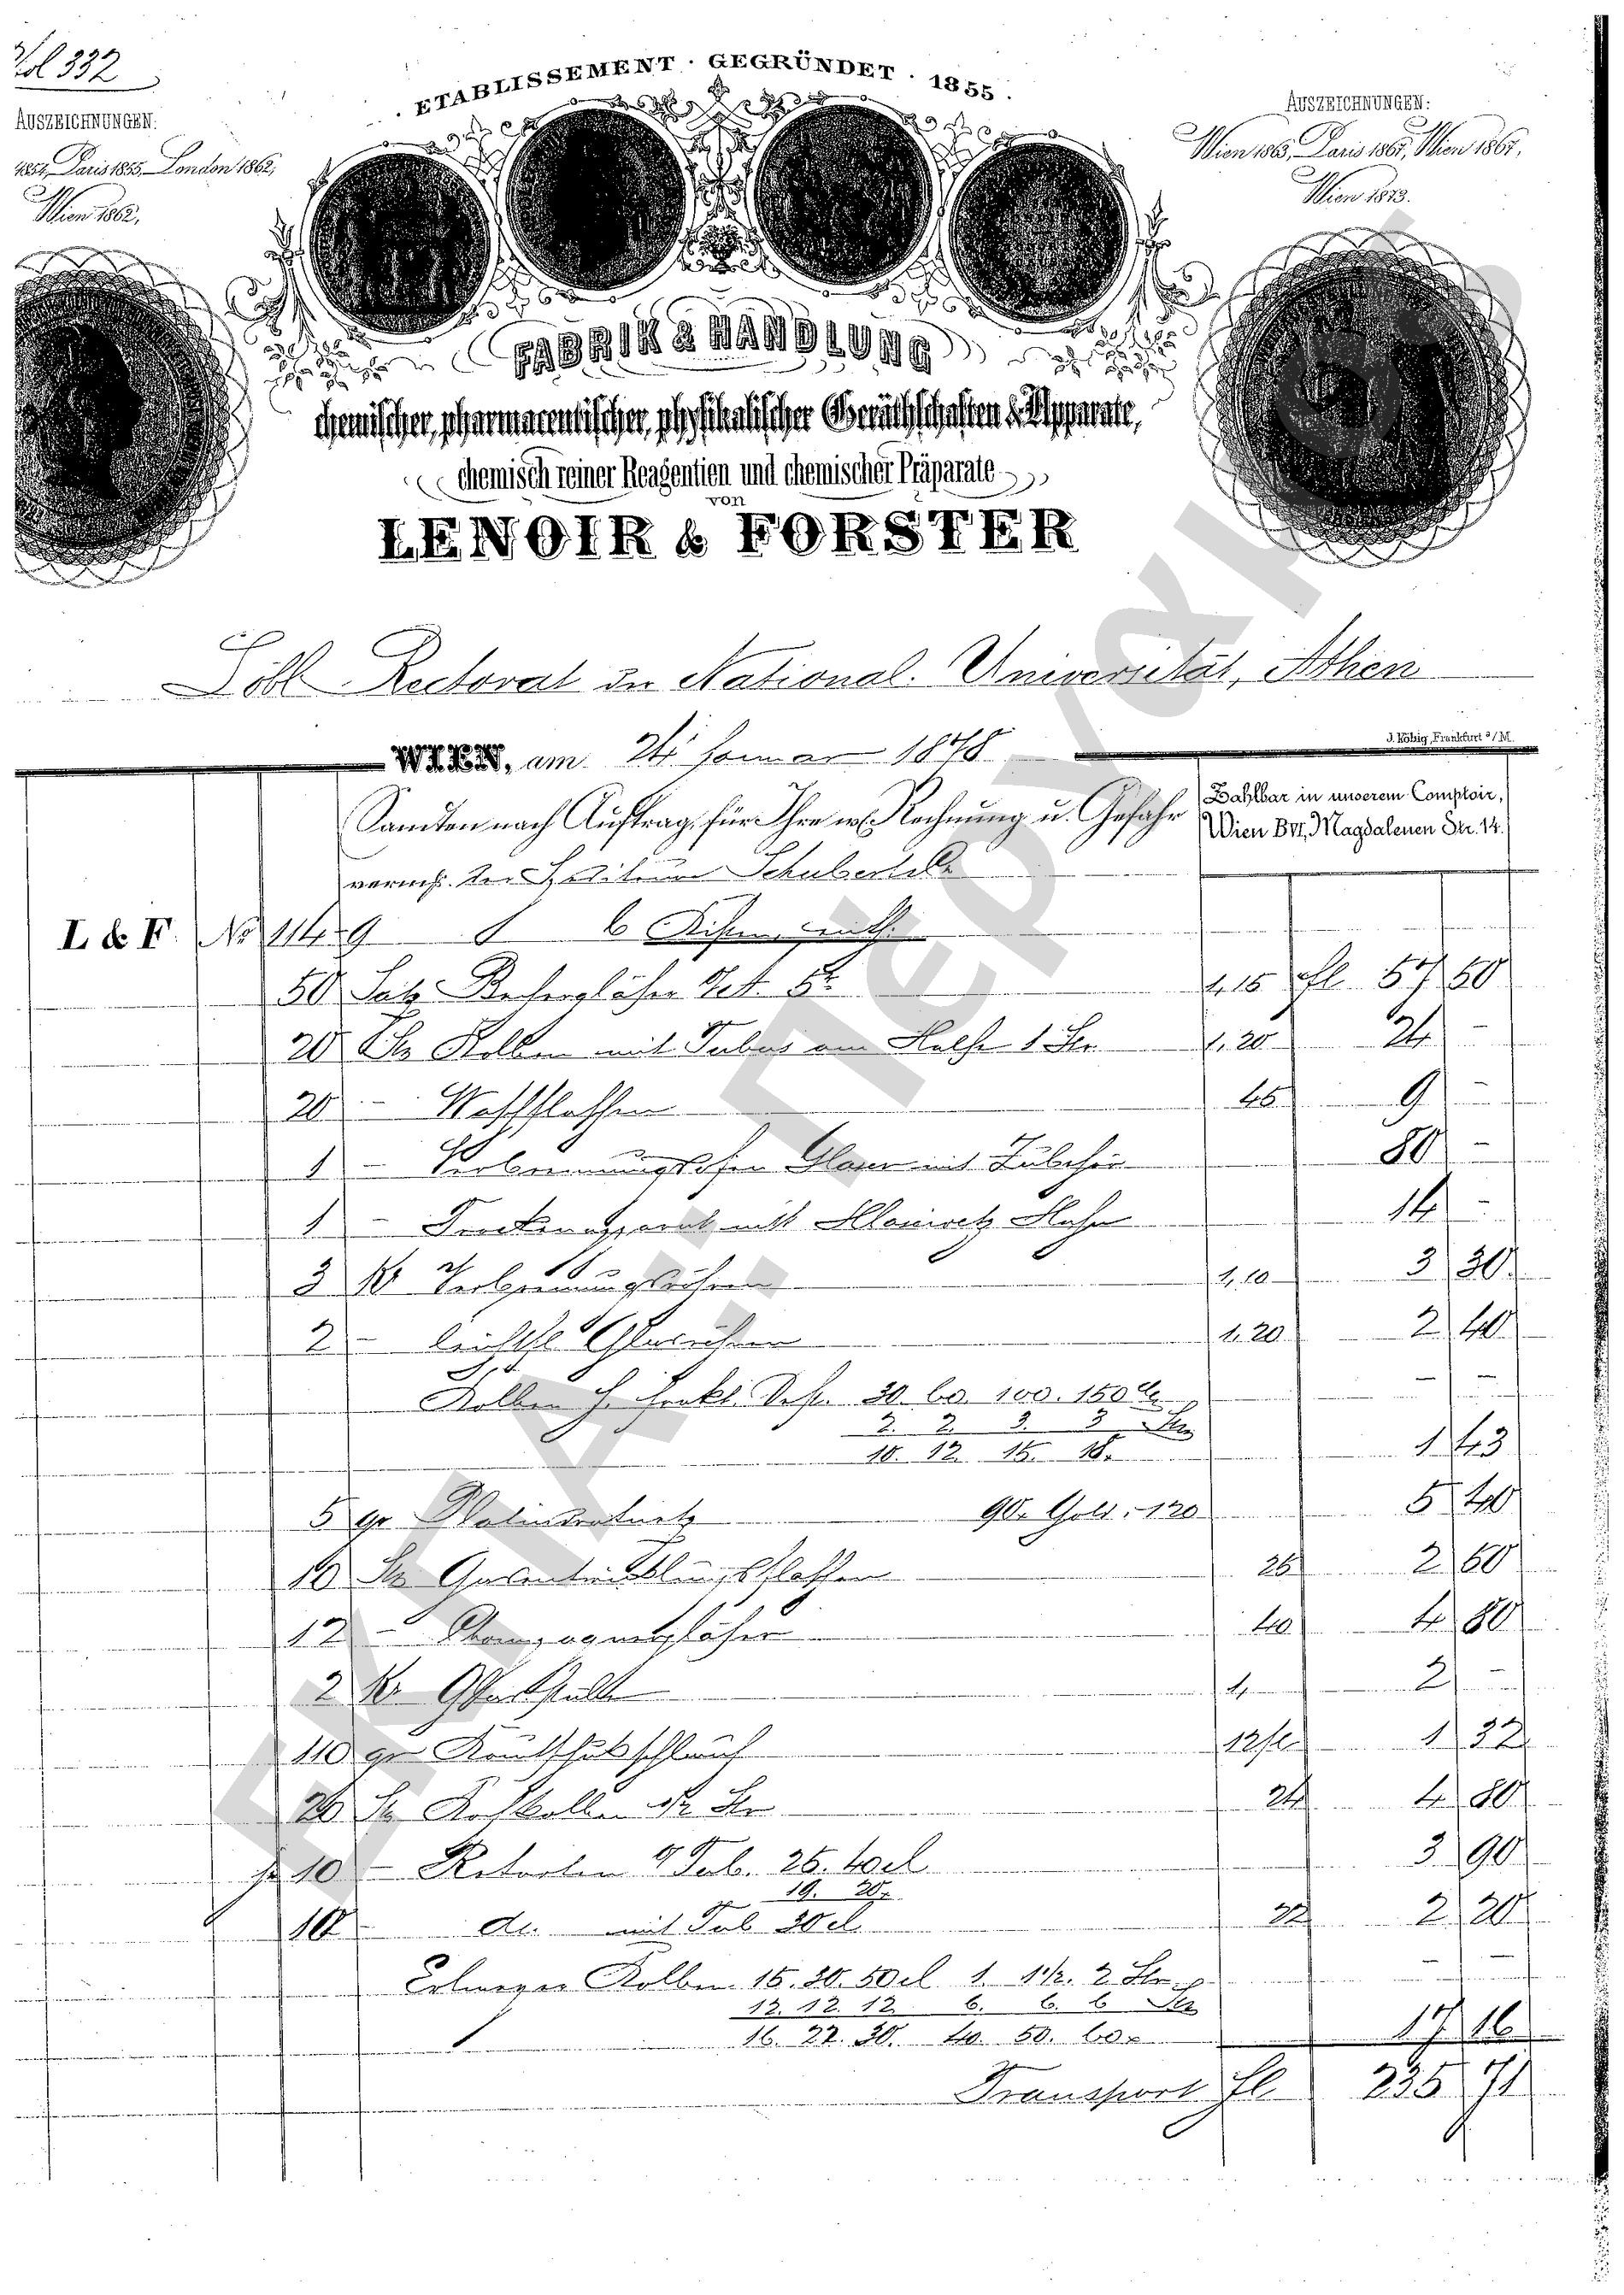 Fol 332
ETABLISSEMENT · GEGRÜNDET · 1855 ·
AUSZEICHNUNGEN:
1854, Paris 1855, London 1862,
Wien 1862,
AUSZEICHNUNGEN:
Wien 1863, Paris 1867, Wien 1867,
Wien 1873.
FABRIK & HANDLUNG
chemischer, pharmaceutischer, physikalischer Geräthschaften & Apparate,
chemisch reiner Reagentien und chemischer Präparate
von
LENOIR & FORSTER
Löbl Rectorat der National. Universität, Athen
J. Köbig, Frankfurt a/M.
WIEN, am 24 Januar 1878
Sandten nach Auftrag für Ihre w. Rechnung u. Gefahr
Zahlbar in unserem Comptoir,
Wien BVI, Magdalenen Str. 14.
L & F. No 1149 6 Kisten, enth.
50 Satz Bechergläser 1,15 fl 57 50
20 Stk Kolben mit Tubus am Halse 1 Ltr 1,20 24 –
20 – Waschflaschen 45 9 –
1 – Verbrennungsofen Glaser mit Zubehör 80 –
1 – Trockenapparat mit Hahn 14 –
3 Ko Verbrennungsröhren 1,10 3 30
2 – Glasröhren 1,20 2 40
Kolben f. frakt. Dest. 30. 60. 100. 150
2. 2. 3. 3 Stk
10. 12. 15. 18. 1 43
5 gr Platindratnetz 90x Gold: 120 5 40
10 Stk Gasentwicklungsflaschen 26 2 60
12 – Champagnergläser 40 4 80
2 Ko 1, 2 –
110 gr Kautschukschlauch 12 fl 1 32
20 St Kochkolben 1/2 Ltr 24 4 80
10 – Retorten o Tub. 25. 40 cl 3 90
19. 20x
10 – do. mit Tub 30 cl 22 2 20
Erlmeyer Kolben 15. 30. 50 cl 1. 1 1/2. 2 Ltr
12. 12. 12 6. 6. 6 Stk
16. 22. 30. 40. 50. 60x 17 16
Transport fl 235 71